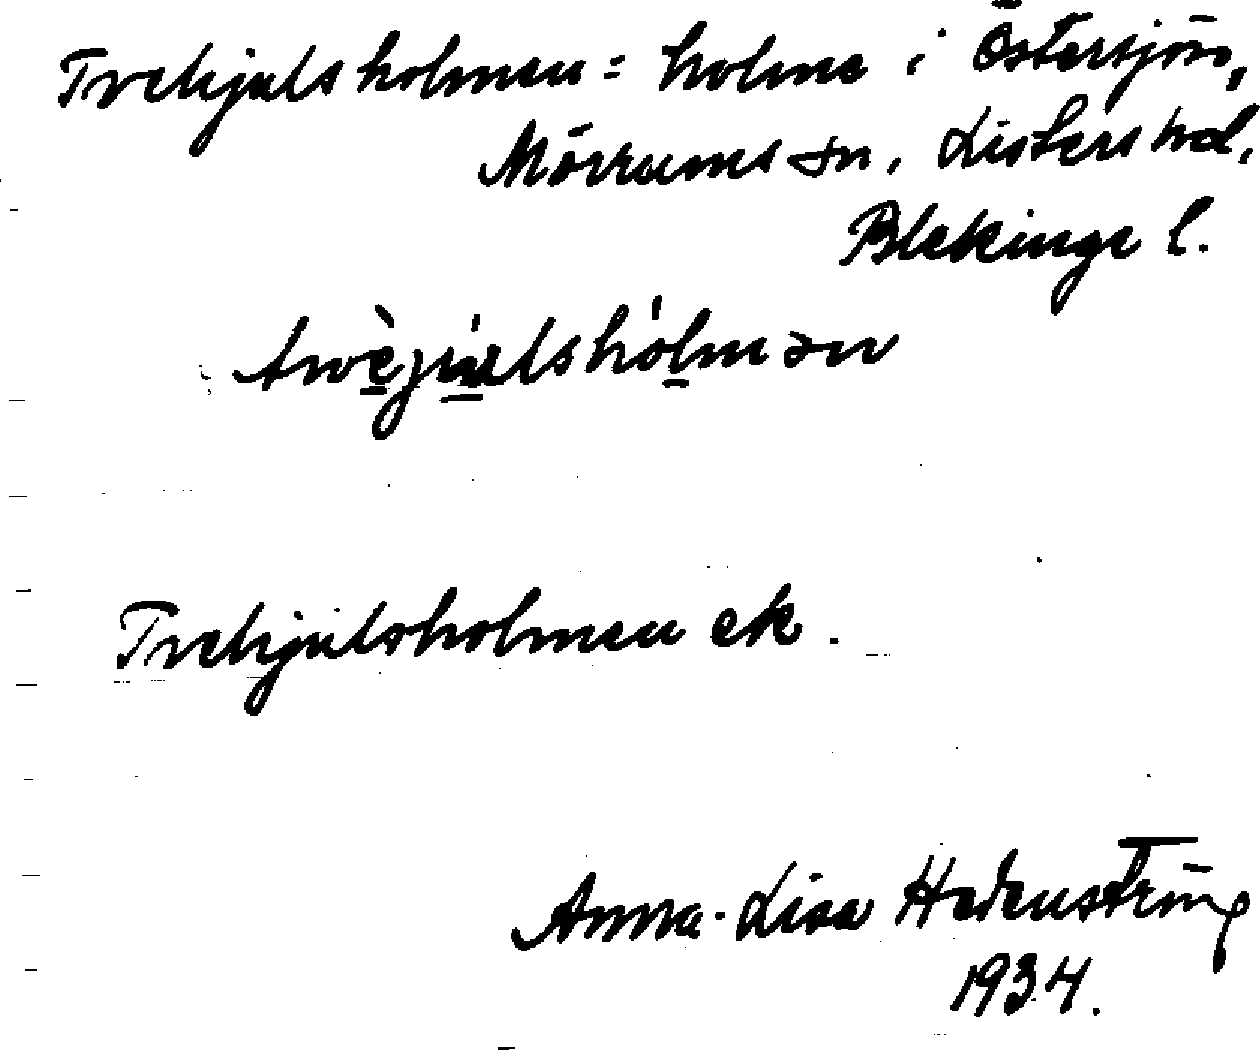 Trehjulsholmen = holme i Östersjön,
Mörrums sn, Listers hd,
Blekinge l.
Trehjulsholmen ek.
Anna-Lisa Hedenström
1934.